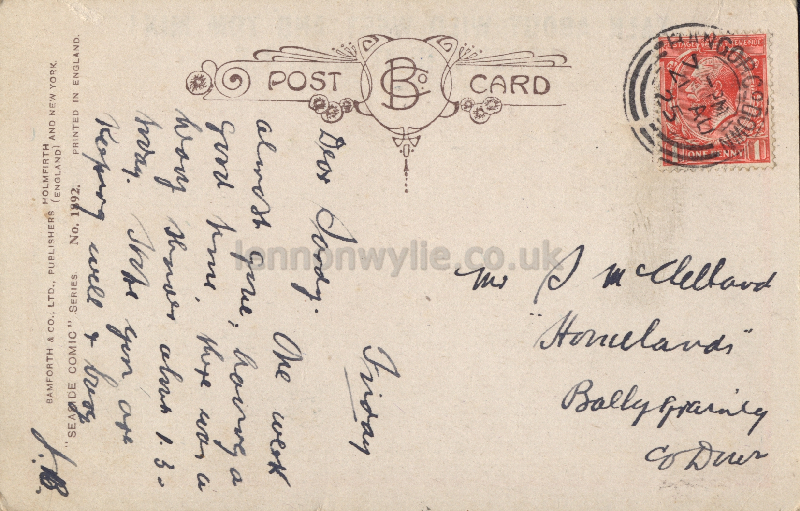 POST CARD
B Co.
BANGOR CO. DOWN
ONE PENNY
Friday
Dear Sandy.
One week
almost gone, having a
good time. there was a
wory shower about 1.3-
today. Hope you are
keeping well & busy
J.B.
Mr S McClelland
"Homelands"
Ballygrainey
Co Down
BAMFORTH & CO., LTD., PUBLISHERS HOLMFIRTH AND NEW YORK.
(ENGLAND)
"SEASIDE COMIC" SERIES. No. 1892. PRINTED IN ENGLAND.
lennonwylie.co.uk